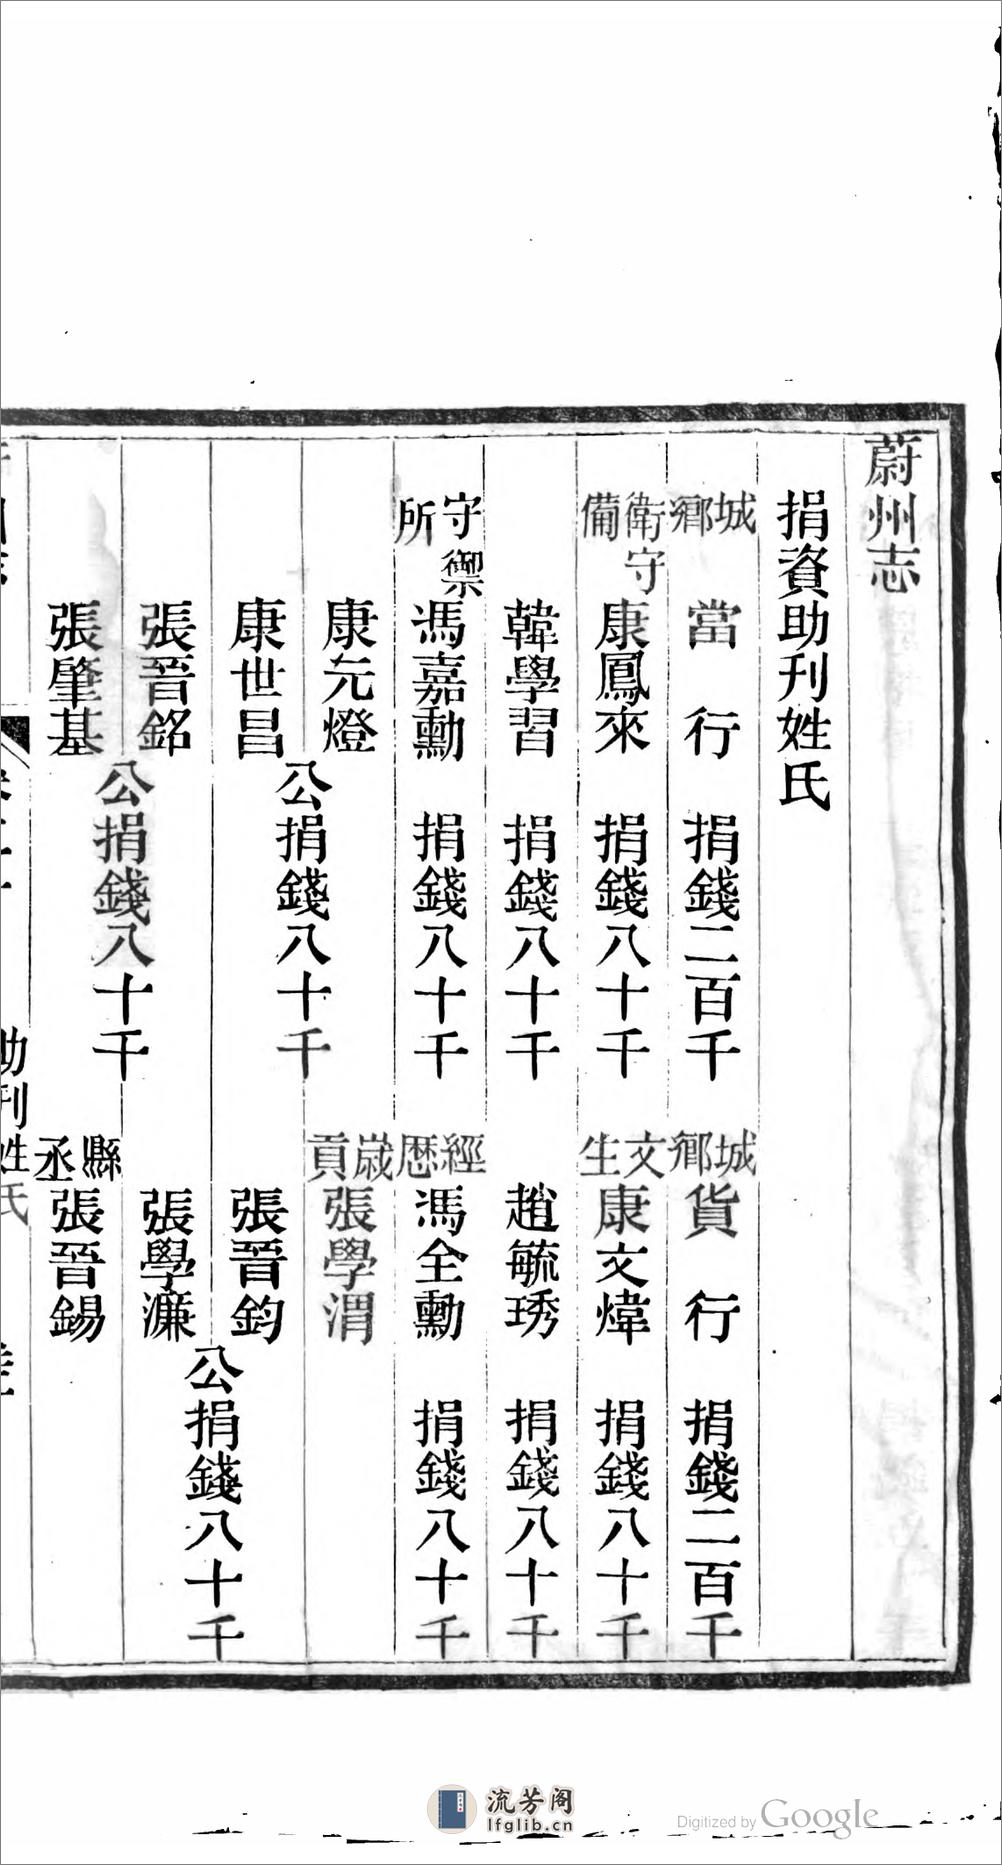 蔚州志
捐資助刊姓氏
城鄉當行 捐錢二百千 城鄉貨行 捐錢二百千
衛守備康鳳來 捐錢八十千 文生康文煒 捐錢八十千
韓學習 捐錢八十千 趙毓琇 捐錢八十千
守禦所馮嘉勳 捐錢八十千 經歷馮全勳 捐錢八十千
康元燈 歲貢張學渭
公捐錢八十千
康世昌 張晉鈞
公捐錢八十千
張晉銘 張學濂
公捐錢八十千
張肇基 縣丞張晉錫
助刊姓氏
流芳阁
lfglib.cn
Digitized by Google